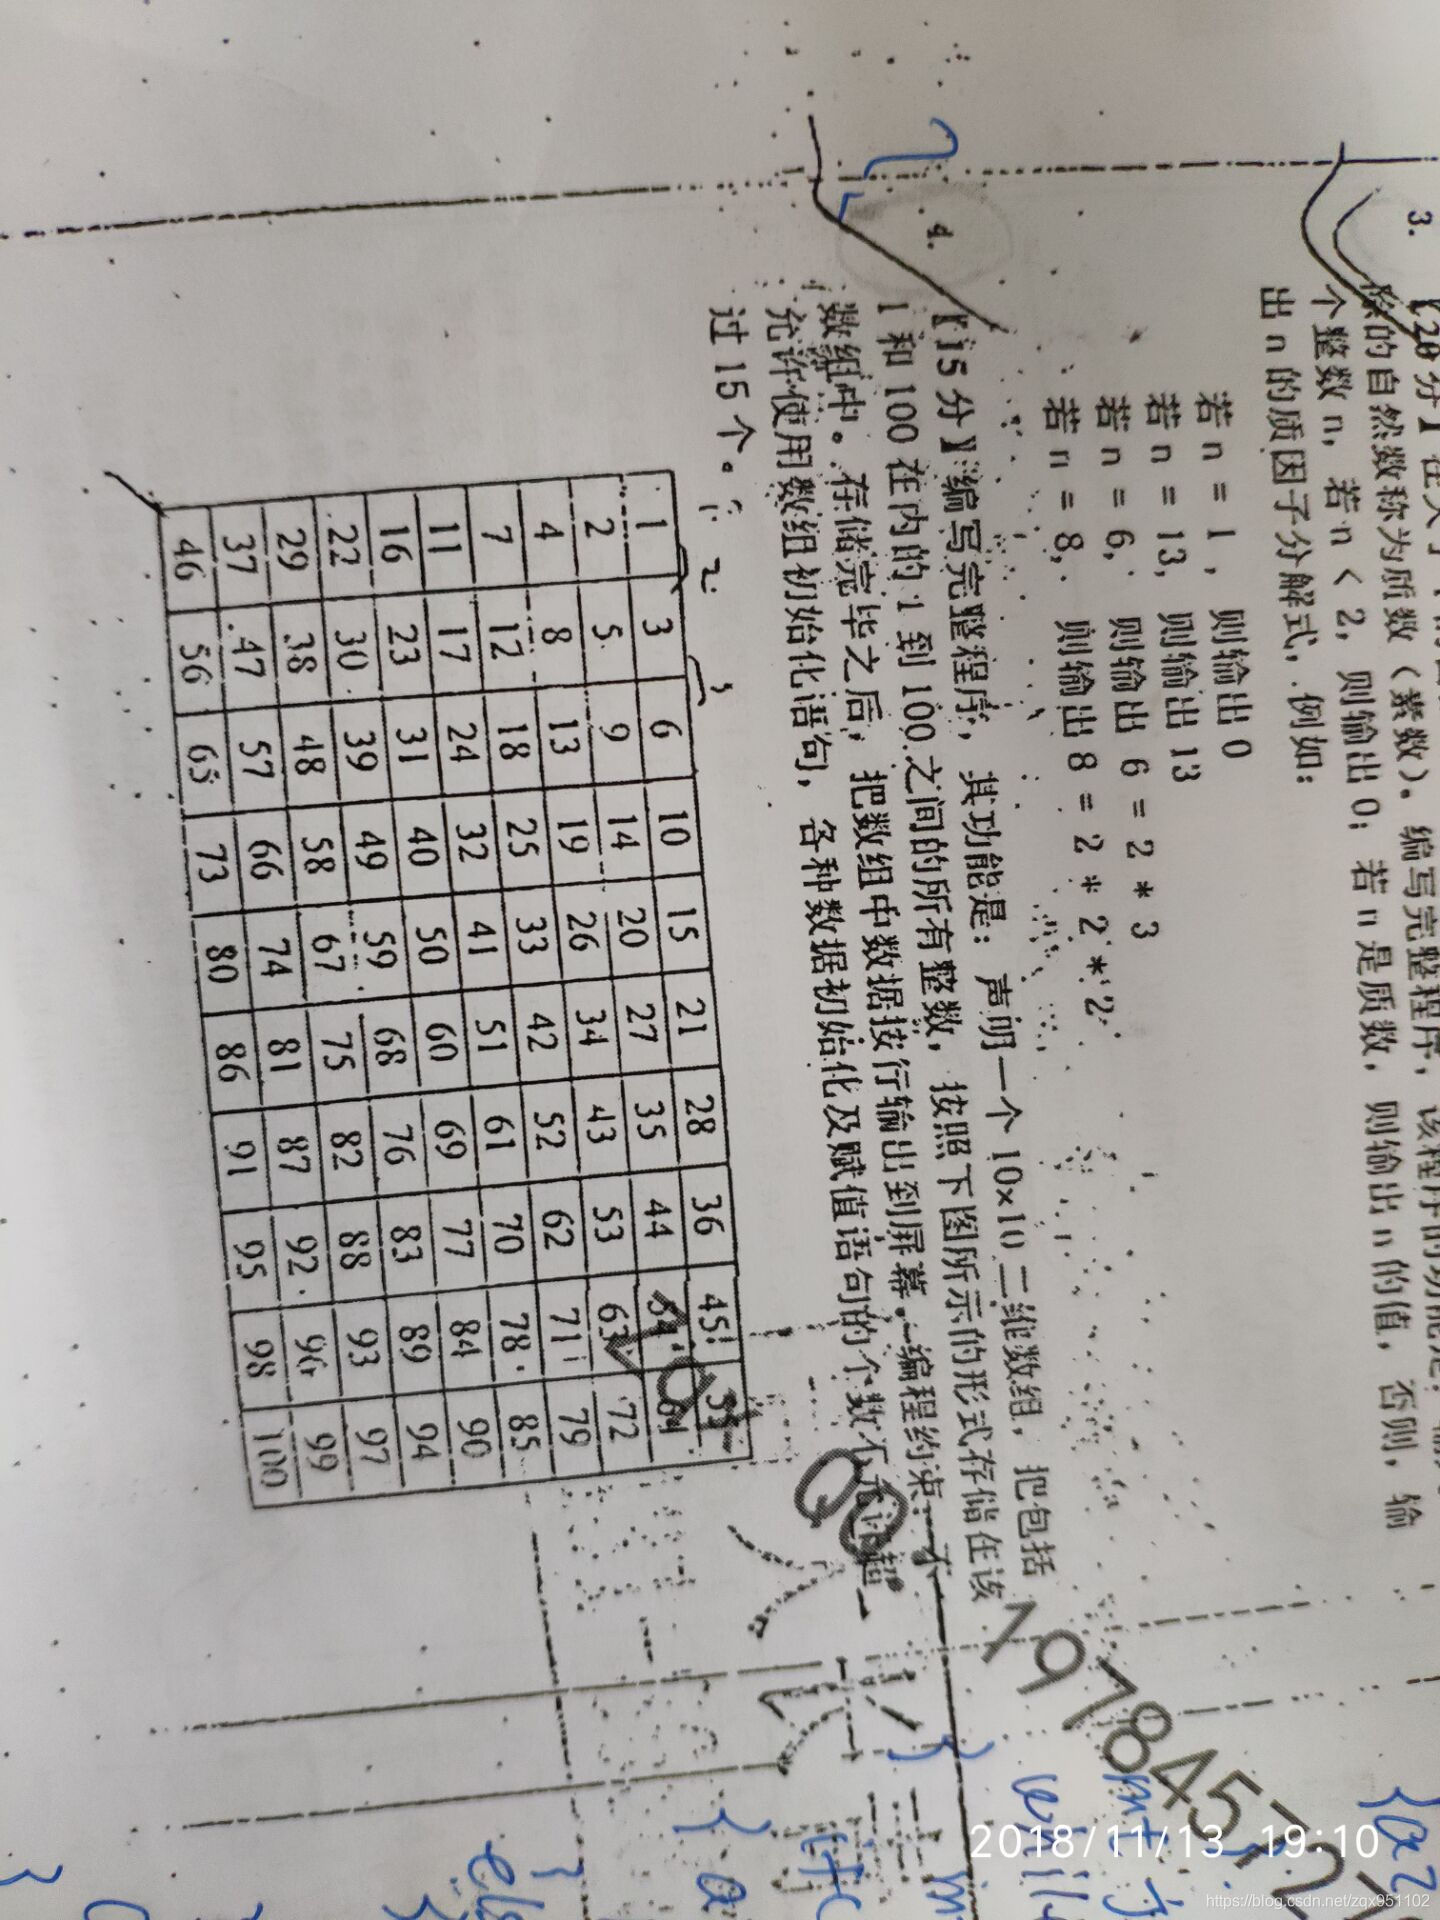 3. 【20分】在大于1的
除的自然数称为质数（素数）。编写完整程序，该程序的功能是：
个整数 n，若 n < 2，则输出 0；若 n 是质数，则输出 n 的值，否则，输
出 n 的质因子分解式，例如：
若 n = 1, 则输出 0
若 n = 13, 则输出 13
若 n = 6, 则输出 6 = 2 * 3
若 n = 8, 则输出 8 = 2 * 2 * 2
4. 【15分】编写完整程序，其功能是：声明一个 10×10 二维数组，把包括
1 和 100 在内的 1 到 100 之间的所有整数，按照下图所示的形式存储在该
数组中。存储完毕之后，把数组中数据按行输出到屏幕。编程约束：不
允许使用数组初始化语句，各种数据初始化及赋值语句的个数不允许超
过 15 个。
1 3 6 10 15 21 28 36 45
2 5 9 14 20 27 35 44 54
4 8 13 19 26 34 43 53 63 72
7 12 18 25 33 42 52 62 71 79
11 17 24 32 41 51 61 70 78 85
16 23 31 40 50 60 69 77 84 90
22 30 39 49 59 68 76 83 89 94
29 38 48 58 67 75 82 88 93 97
37 47 57 66 74 81 87 92 96 99
46 56 65 73 80 86 91 95 98 100
QQ
2018/11/13 19:10
https://blog.csdn.net/zqx951102